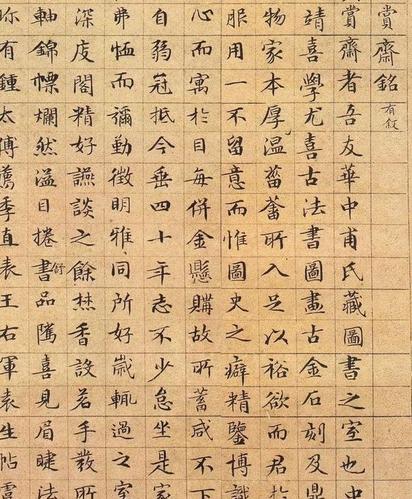 賞齋銘有叙
賞齋者吾友華中甫氏藏圖書之室也中
靖喜學尤喜古法書圖畫古金石刻及鼎
物家本厚温菑畬所入足以裕欲而君於
服用一不留意而惟圖史之癖精鑒博識
心而寓於目每併金懸購故所蓄咸不下
自弱冠抵今垂四十年志不少怠坐是家
弗恤而彌勤徵明雅同所好歲輒過之室
深庋閣精好讌談之餘焚香設茗手發所
軸錦幖爛然溢目捲書舒品騭喜見眉睫法
珎有鍾太傅薦季直表王右軍袁生帖虞